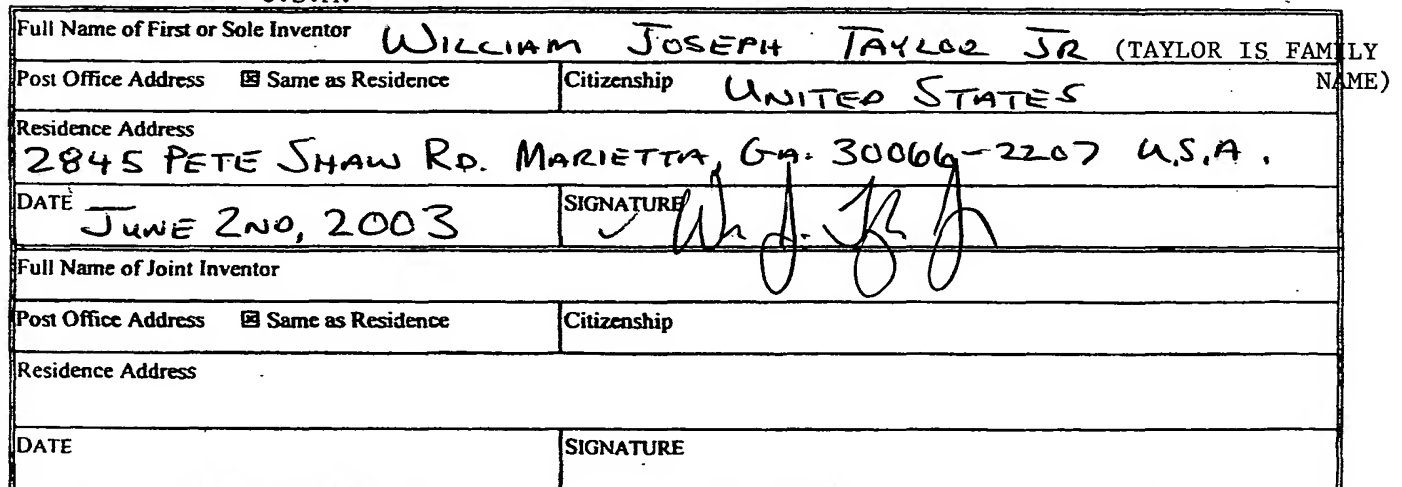 Full Name of First or Sole Inventor WILLIAM JOSEPH TAYLOR JR (TAYLOR IS FAMILY NAME)
Post Office Address ☒ Same as Residence Citizenship UNITED STATES
Residence Address
2845 PETE SHAW RD. MARIETTA, GA. 30066-2207 U.S.A.
DATE JUNE 2ND, 2003 SIGNATURE
Full Name of Joint Inventor
Post Office Address ☒ Same as Residence Citizenship
Residence Address
DATE SIGNATURE